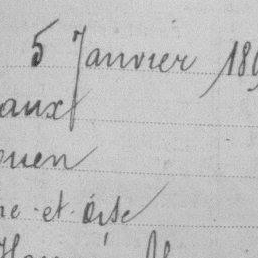 5 Janvier 189
aux
ouen
ne-et-Oise